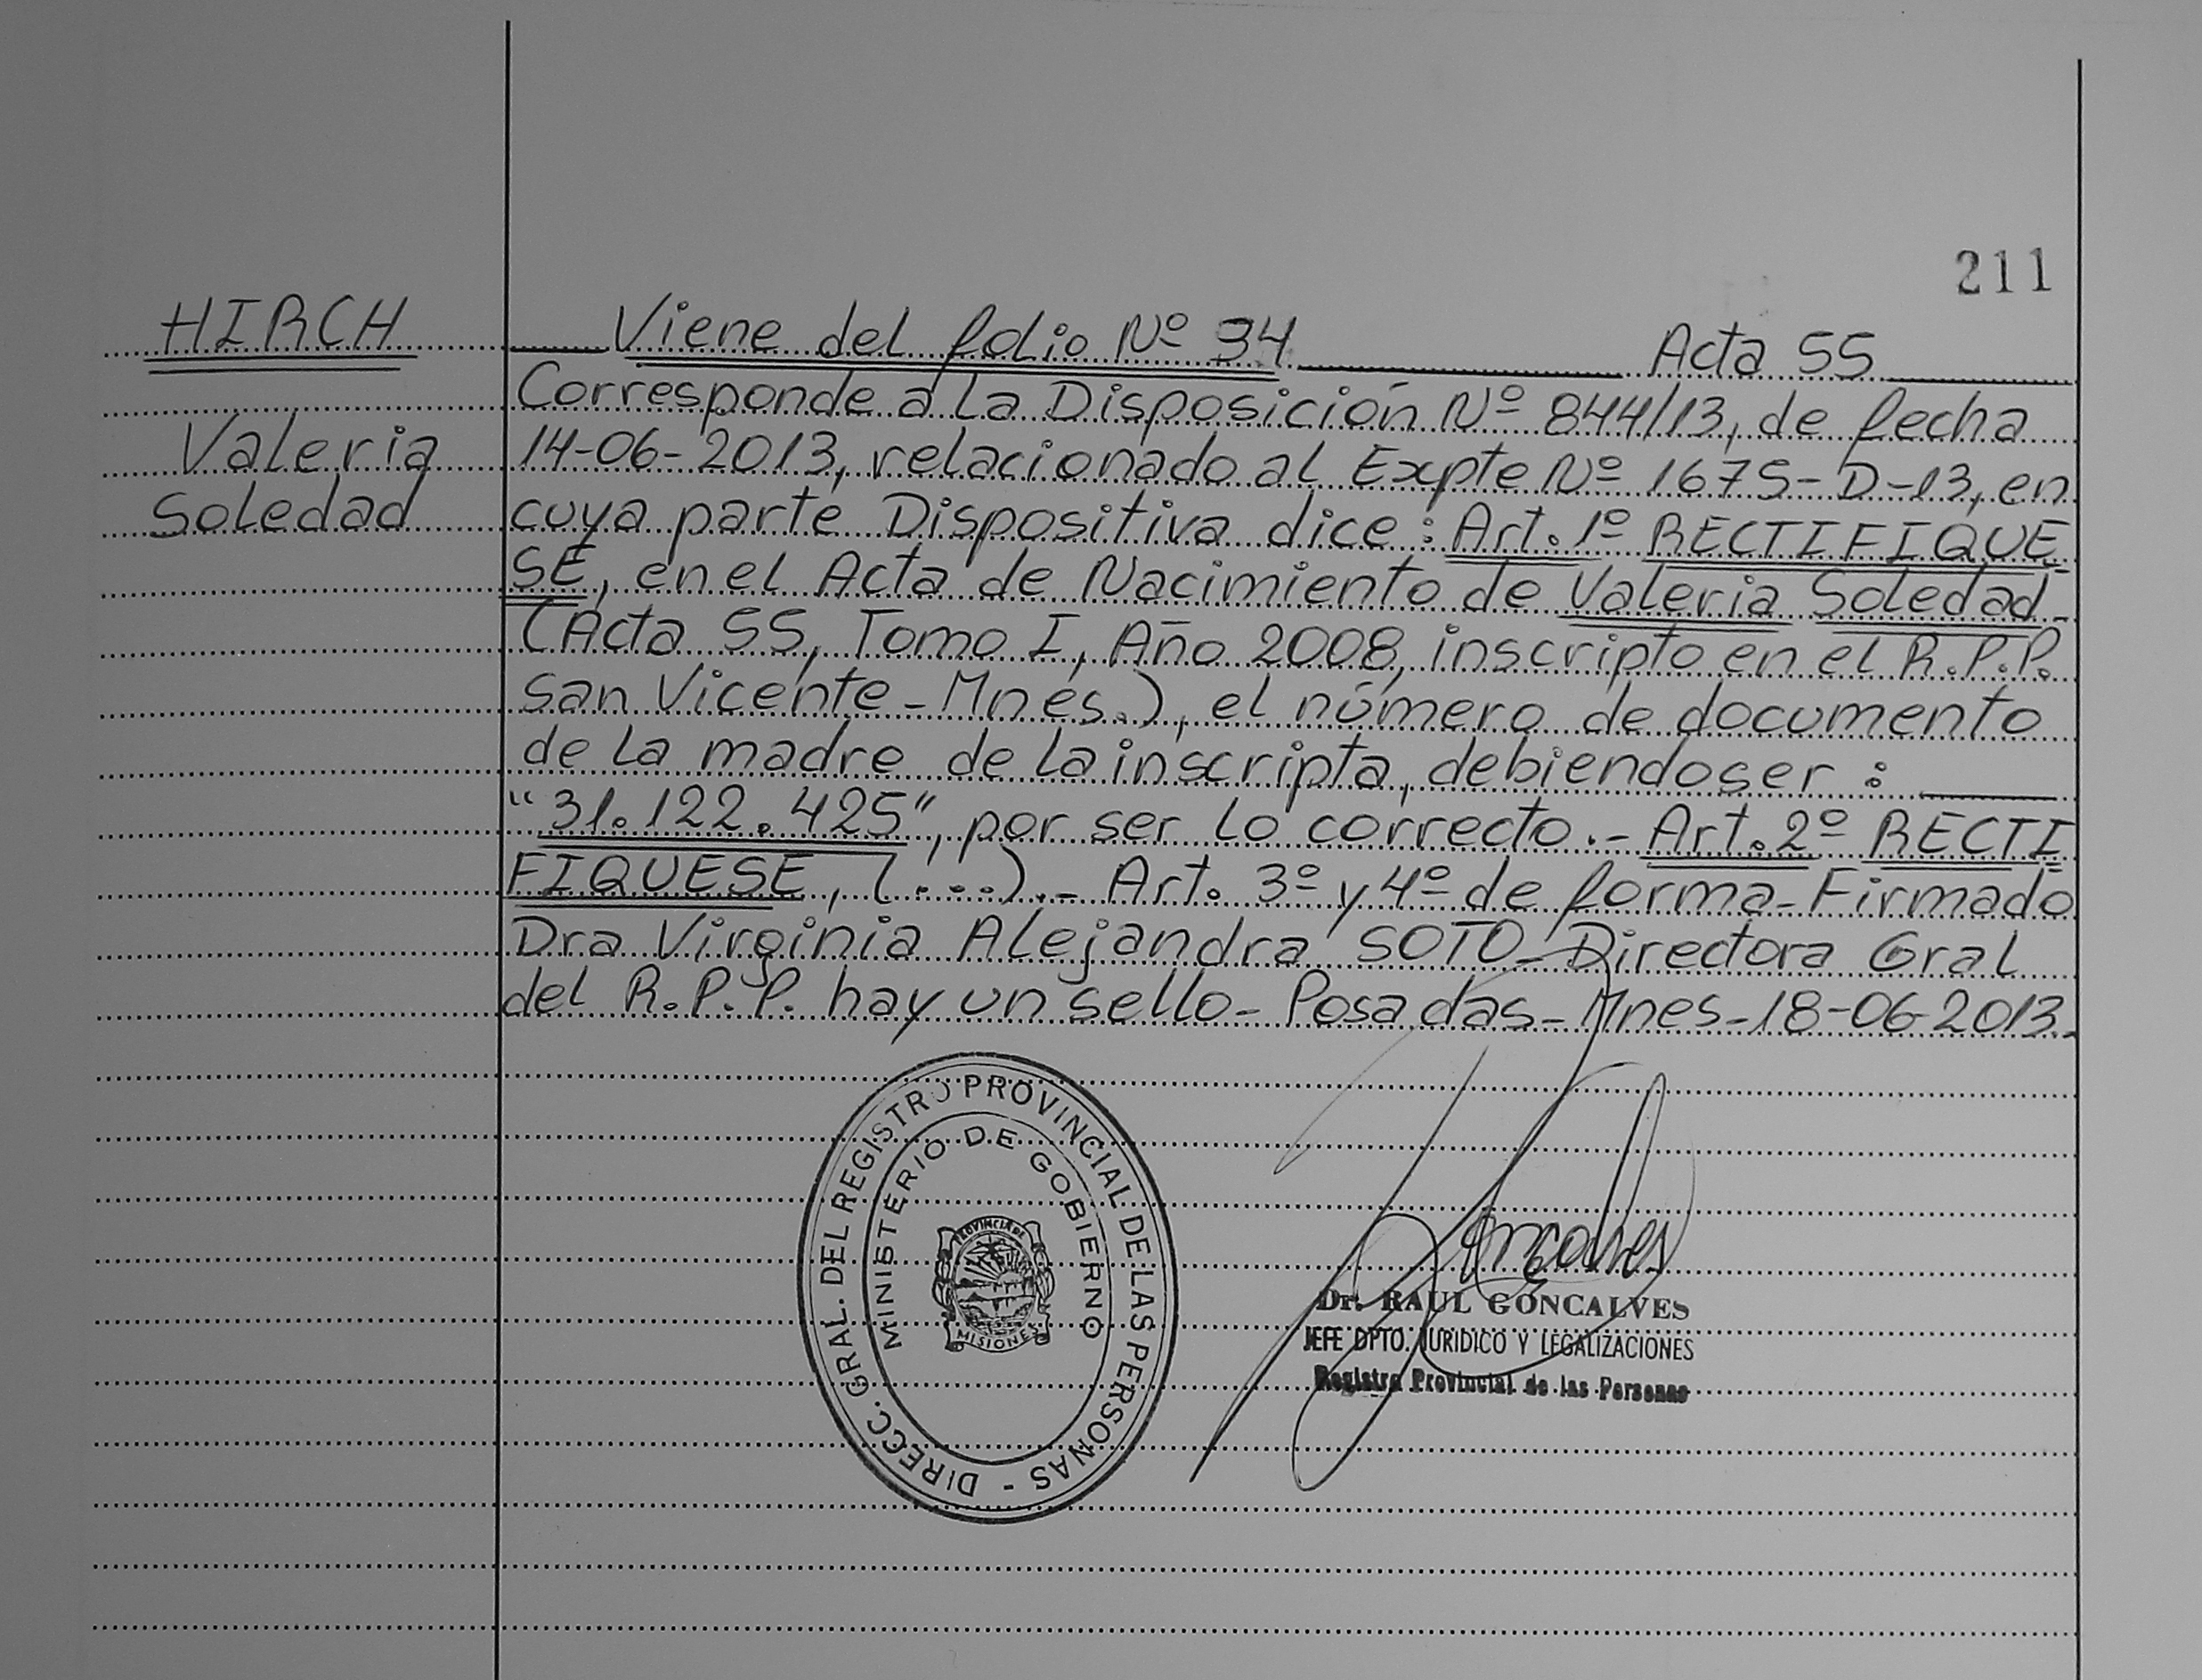 211
HIRCH
Valeria
Soledad
Viene del folio Nº 34 Acta 55
Corresponde a la Disposición Nº 844/13, de fecha
14-06-2013, relacionado al Expte Nº 1675-D-13, en
cuya parte Dispositiva dice: Art. 1º RECTIFIQUE
SE, en el Acta de Nacimiento de Valeria Soledad-
(Acta 55, Tomo I, Año 2008, inscripto en el R.P.P.
San Vicente-Mnes.), el número de documento
de la madre de la inscripta, debiendo ser:
"31.122.425", por ser lo correcto.- Art. 2º RECTI
FIQUESE, (...).- Art. 3º y 4º de forma-Firmado
Dra Virginia Alejandra SOTO-Directora Gral
del R.P.P. hay un sello-Posadas-Mnes-18-06-2013.-
DIRECC. GRAL. DEL REGISTRO PROVINCIAL DE LAS PERSONAS -
MINISTERIO DE GOBIERNO
PROVINCIA DE
MISIONES
Dr. RAUL GONCALVES
JEFE DPTO. JURIDICO Y LEGALIZACIONES
Registro Provincial de las Personas